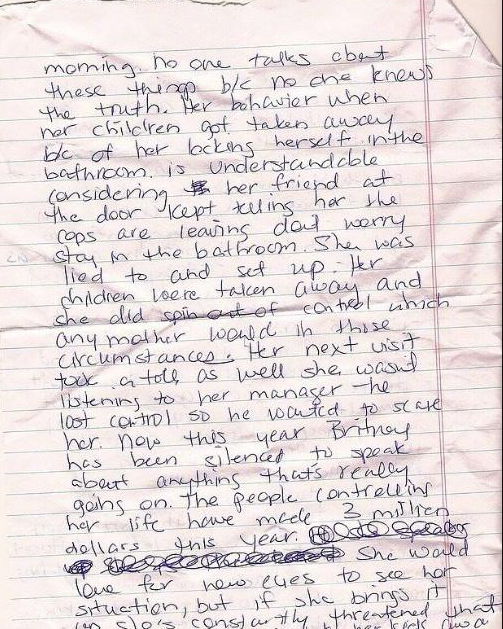 morning. no one talks about
these things b/c no one knows
the truth. Her behavior when
her children got taken away
b/c of her locking herself in the
bathroom. is understandable
considering her friend at
the door kept telling her the
cops are leaving dont worry
stay in the bathroom. She was
lied to and set up. Her
children were taken away and
she did spin out of control which
any mother would in those
circumstances. Her next visit
took a toll as well she wasnt
listening to her manager he
lost control so he wanted to scare
her. Now this year Britney
has been silenced to speak
about anything that's really
going on. The people controlling
her life have made 3 million
dollars this year.
She would
love for new eyes to see her
situation, but if she brings it
constantly threatened that